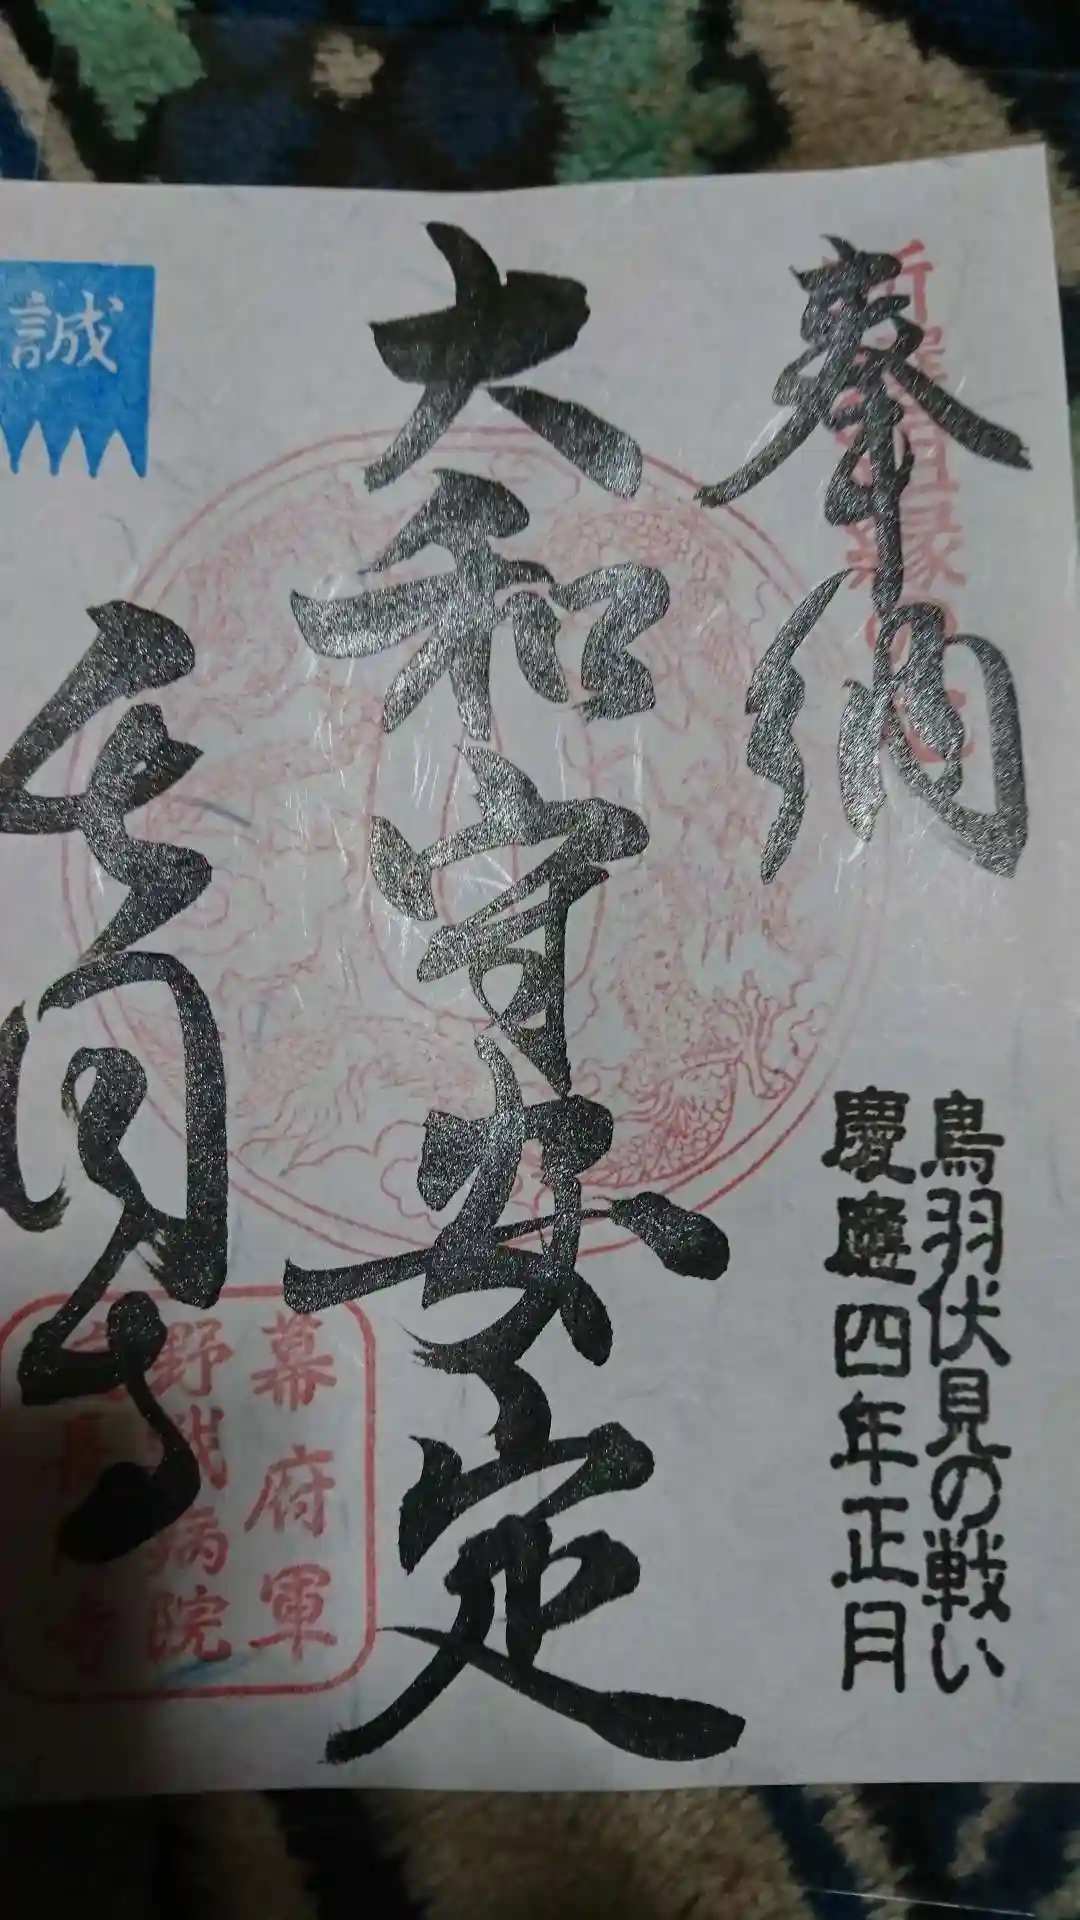 奉納
新撰組縁の地
鳥羽伏見の戦い
慶應四年正月
大和守安定
誠
長円寺
幕府軍
野戦病院